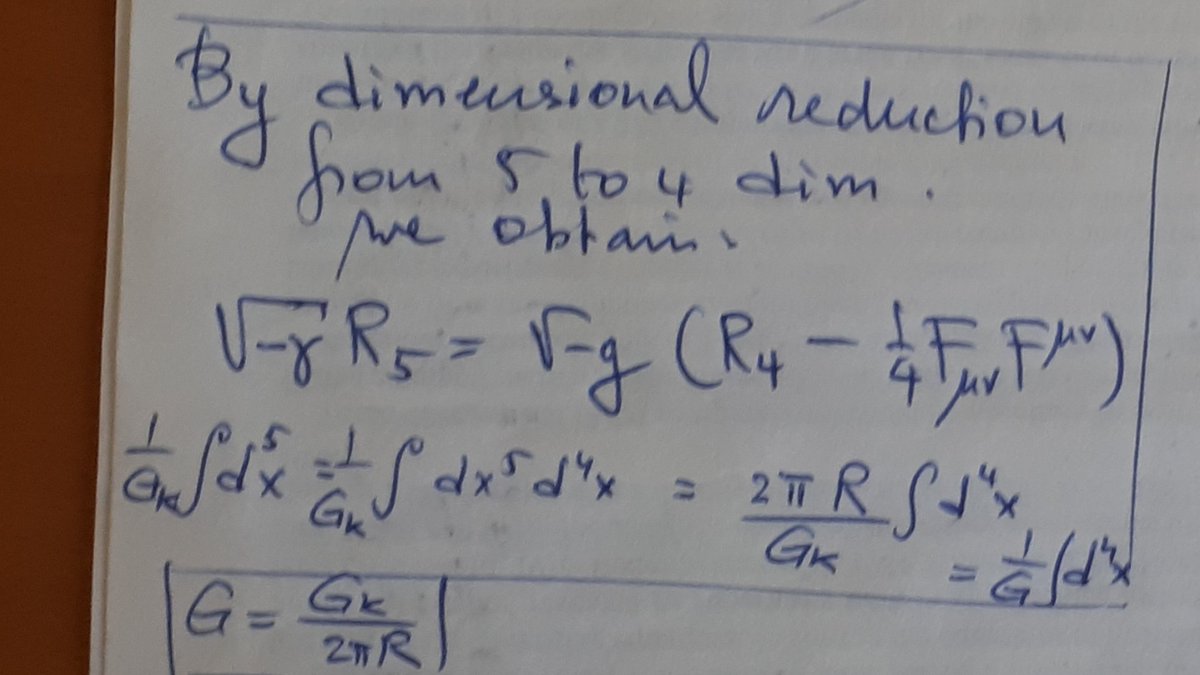 By dimensional reduction
from 5 to 4 dim.
we obtain.
√-γ R₅ = √-g (R₄ - 1/4 F_μν F^μν)
1/G_K ∫d⁵x = 1/G_K ∫ dx⁵ d⁴x = 2πR/G_K ∫d⁴x
= 1/G ∫d⁴x
G = G_K/2πR